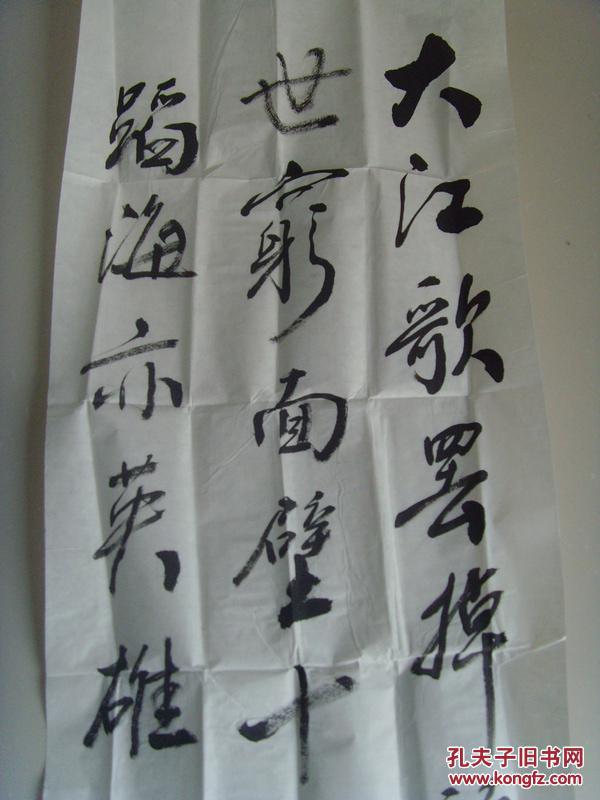 大江歌罢掉
世穷面壁十
蹈海亦英雄
孔夫子旧书网
www.kongfz.com